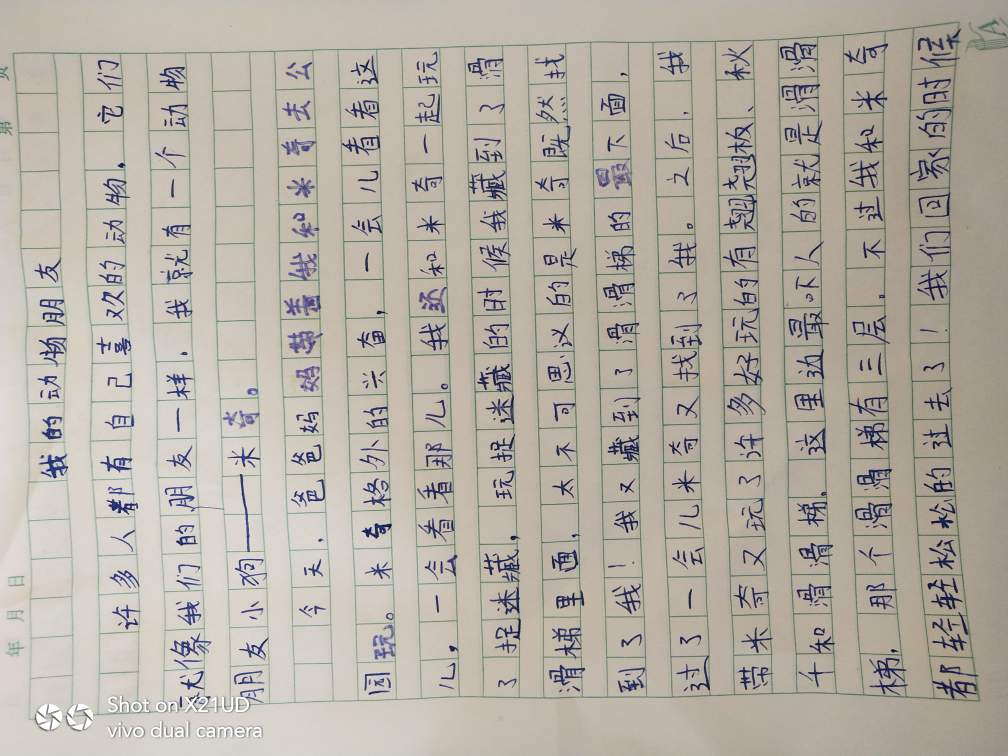 第 页
年 月 日
我的动物朋友
许多人都有自己喜欢的动物，它们
就像我们的朋友一样，我就有一个动物
朋友小狗——米奇。
今天，爸爸妈妈带着我和米奇去公
园玩。米奇格外的兴奋，一会儿看看这
儿，一会看看那儿。我还和米奇一起玩
了捉迷藏，玩捉迷藏的时候我藏到了滑
滑梯里面，太不可思议的是米奇既然找
到了我！我又藏到了滑滑梯的最下面，
过了一会儿米奇又找到了我。之后，我
带米奇又玩了许多好玩的有翘翘板、秋
千和滑滑梯，这里边最吓人的就是滑滑
梯，那个滑滑梯有三层。不过我和米奇
都轻轻松松的过去了！我们回家的时候天
Shot on X21UD
vivo dual camera